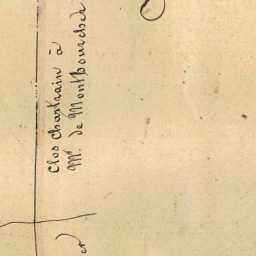 Clos Chastrain à
Mr. de Montbourcher